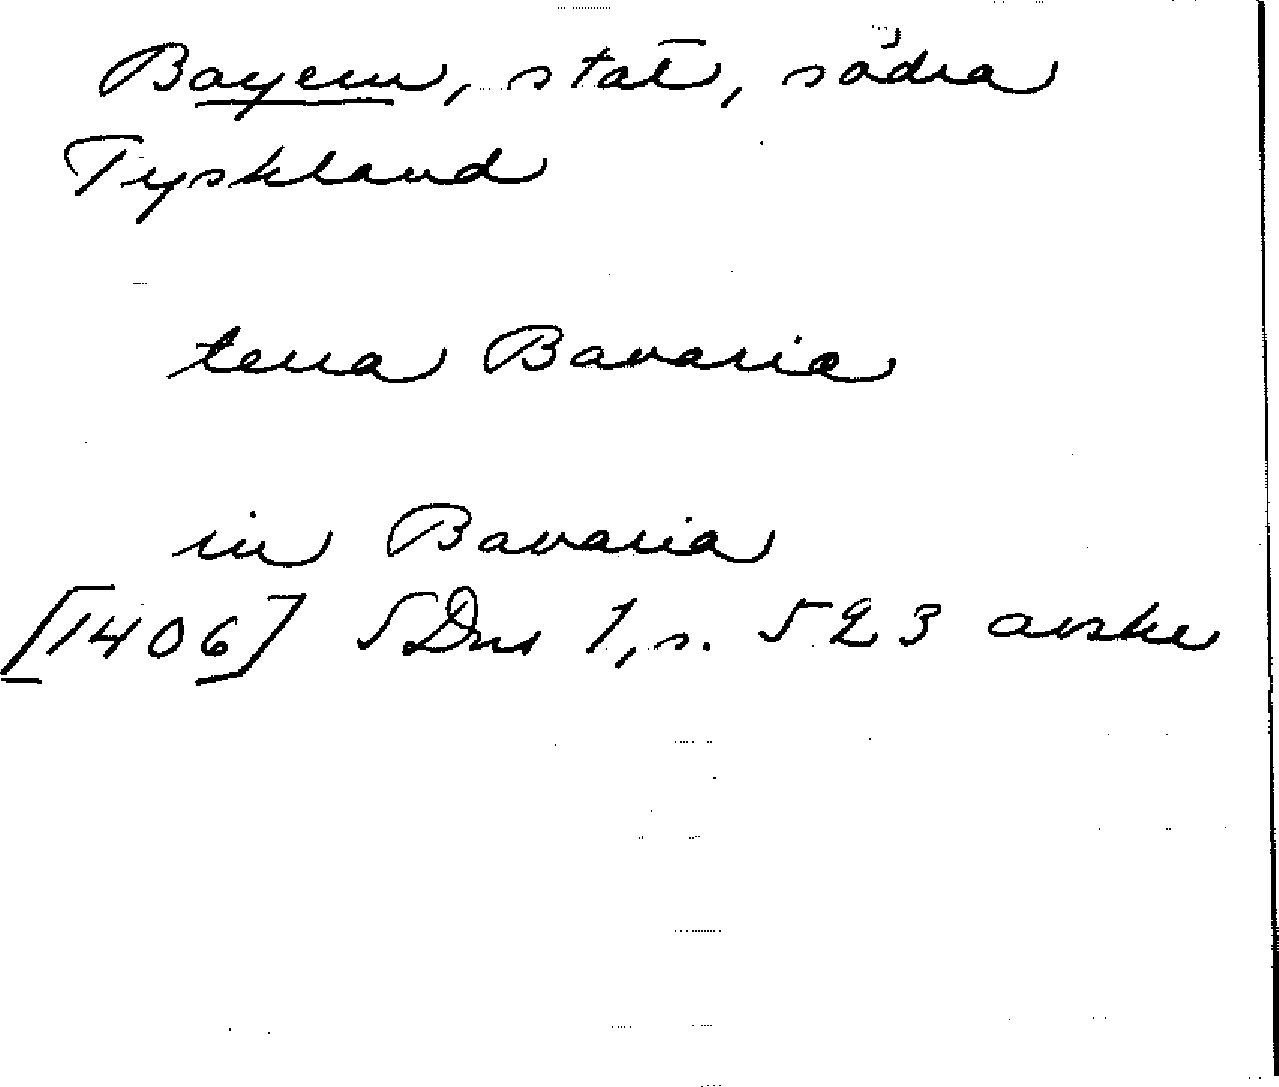 Bayern, stat, södra
Tyskland
terra Bavaria
in Bavaria
[1406] SDns 1, s. 523 avskr